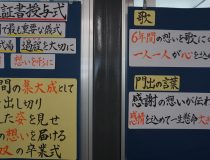 証書授与式
で最も重要な儀式
式場
過程を大切に
想いを形に
間の集大成として
出し切り
た姿を見せ
の想いを届ける
の卒業式
歌
6年間の想いを歌に
一人一人が心を込め
門出の言葉
感謝の想いが伝わ
感情を込めて一生懸命